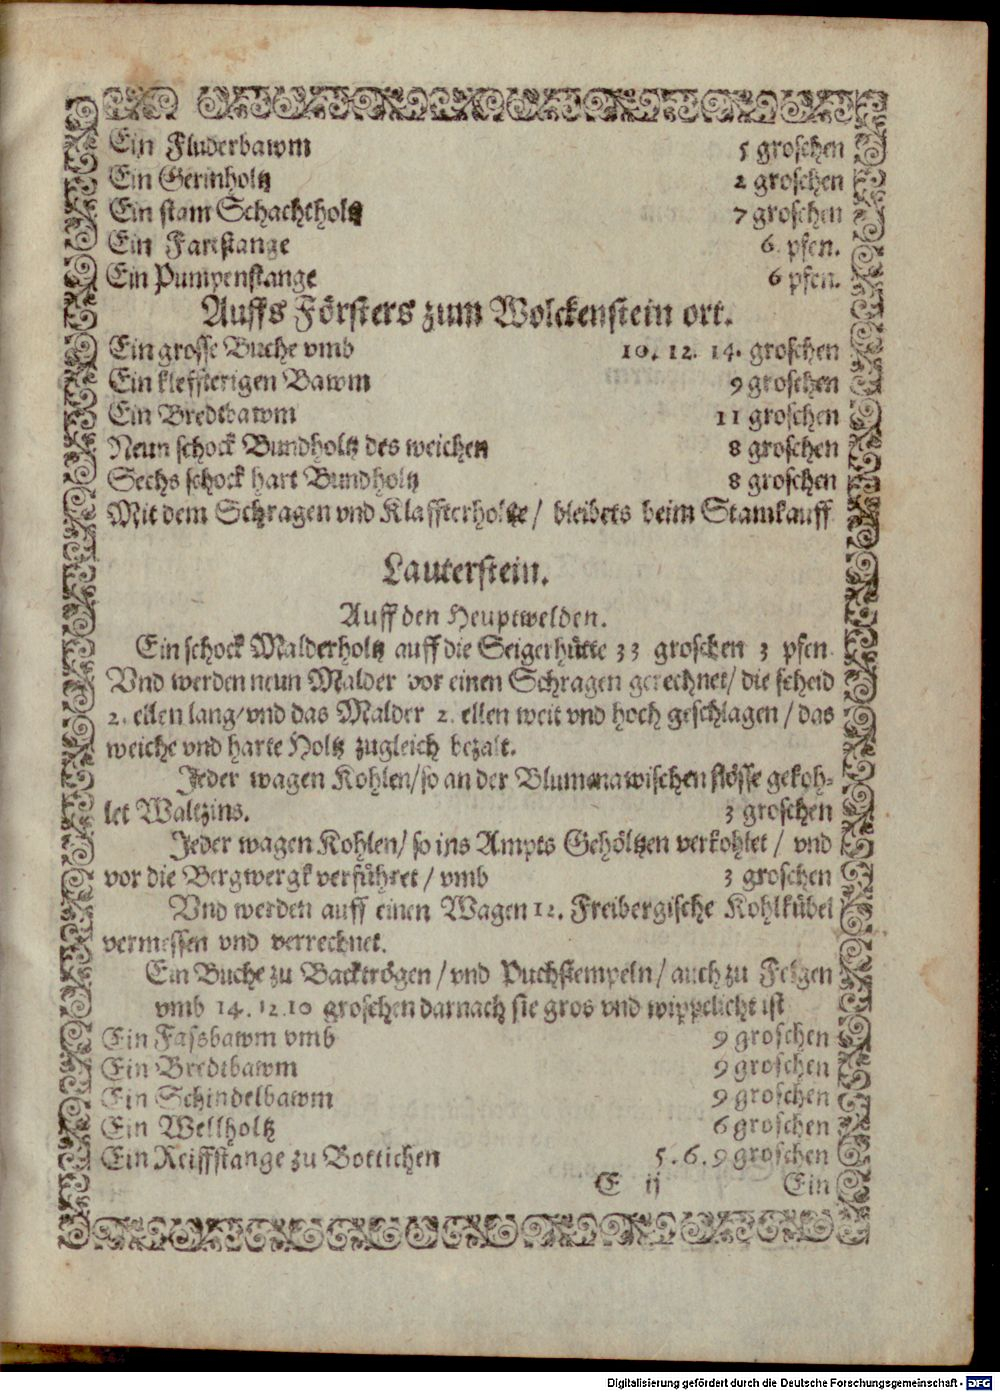 Ein Fluderbawm 5 groschen
Ein Gerinholtz 2 groschen
Ein stam Schachtholtz 7 groschen
Ein Fartstange 6. pfen.
Ein Pumpenstange 6 pfen.
Auffs Försters zum Wolckenstein ort.
Ein grosse Buche vmb 10. 12. 14. groschen
Ein kleffterigen Bawm 9 groschen
Ein Bredtbawm 11 groschen
Neun schock Bundholtz des weichen 8 groschen
Sechs schock hart Bundholtz 8 groschen
Mit dem Schragen vnd Klaffterholtze / bleibets beim Stamkauff
Lauterstein.
Auff den Heuptwelden.
Ein schock Malderholtz auff die Seigerhütte 33 groschen 3 pfen
Vnd werden neun Malder vor einen Schragen gerechnet / die scheid
2. ellen lang / vnd das Malder 2. ellen weit vnd hoch geschlagen / das
weiche vnd harte Holtz zugleich bezalt.
Jeder wagen Kohlen / so an der Blumnawischen flösse gekoh-
let Waltzins. 3 groschen
Jeder wagen Kohlen / so ins Ampts Gehöltzen verkohlet / vnd
vor die Bergwergk verführet / vmb 3 groschen
Vnd werden auff einen Wagen 12. Freibergische Kohlkübel
vermessen vnd verrechnet.
Ein Buche zu Backtrögen / vnd Puchstempeln / auch zu Felgen
vmb 14. 12. 10 groschen darnach sie gros vnd wippelicht ist
Ein Fassbawm vmb 9 groschen
Ein Bredtbawm 9 groschen
Ein Schindelbawm 9 groschen
Ein Wellholtz 6 groschen
Ein Reiffstange zu Bottichen 5. 6. 9 groschen
E ij Ein
Digitalisierung gefördert durch die Deutsche Forschungsgemeinschaft - DFG